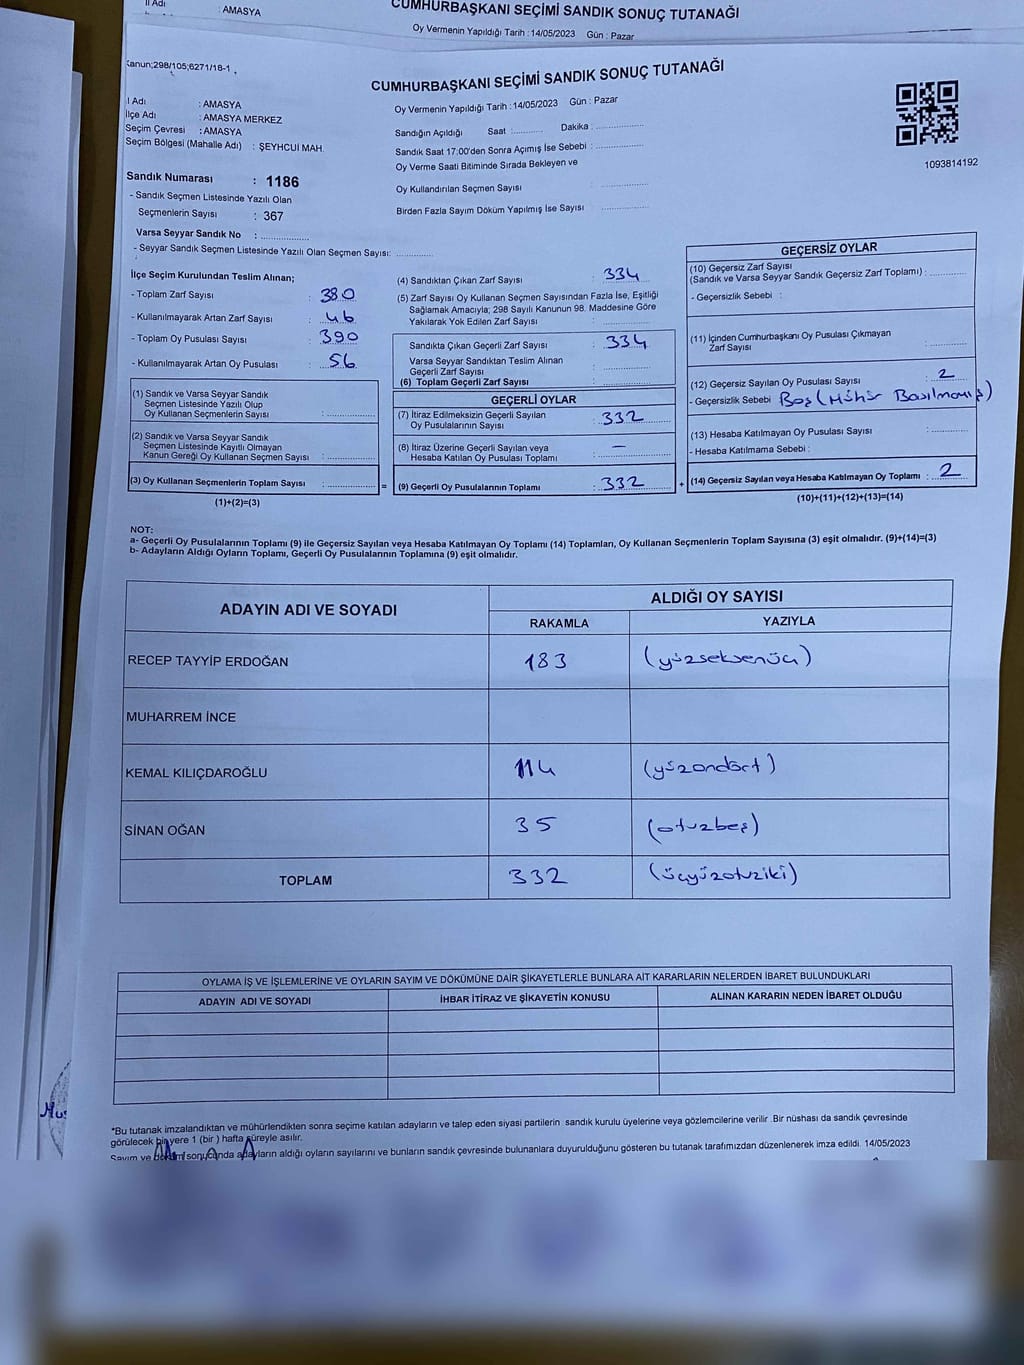 İl Adı : AMASYA
CUMHURBAŞKANI SEÇİMİ SANDIK SONUÇ TUTANAĞI
Oy Vermenin Yapıldığı Tarih : 14/05/2023 Gün : Pazar
Kanun;298/105;6271/18-1
CUMHURBAŞKANI SEÇİMİ SANDIK SONUÇ TUTANAĞI
İl Adı : AMASYA
İlçe Adı : AMASYA MERKEZ
Seçim Çevresi : AMASYA
Seçim Bölgesi (Mahalle Adı) : ŞEYHCUİ MAH.
Sandık Numarası : 1186
- Sandık Seçmen Listesinde Yazılı Olan
Seçmenlerin Sayısı : 367
Varsa Seyyar Sandık No :
- Seyyar Sandık Seçmen Listesinde Yazılı Olan Seçmen Sayısı:
Oy Vermenin Yapıldığı Tarih : 14/05/2023 Gün : Pazar
Sandığın Açıldığı Saat : Dakika :
Sandık Saat 17:00'den Sonra Açımış İse Sebebi :
Oy Verme Saati Bitiminde Sırada Bekleyen ve
Oy Kullandırılan Seçmen Sayısı :
Birden Fazla Sayım Döküm Yapılmış İse Sayısı :
1093814192
İlçe Seçim Kurulundan Teslim Alınan;
- Toplam Zarf Sayısı : 380
- Kullanılmayarak Artan Zarf Sayısı : 46
- Toplam Oy Pusulası Sayısı : 390
- Kullanılmayarak Artan Oy Pusulası : 56
(1) Sandık ve Varsa Seyyar Sandık
Seçmen Listesinde Yazılı Olup
Oy Kullanan Seçmenlerin Sayısı :
(2) Sandık ve Varsa Seyyar Sandık
Seçmen Listesinde Kayıtlı Olmayan
Kanun Gereği Oy Kullanan Seçmen Sayısı :
(3) Oy Kullanan Seçmenlerin Toplam Sayısı : =
(1)+(2)=(3)
(4) Sandıktan Çıkan Zarf Sayısı : 334
(5) Zarf Sayısı Oy Kullanan Seçmen Sayısından Fazla İse, Eşitliği
Sağlamak Amacıyla; 298 Sayılı Kanunun 98. Maddesine Göre
Yakılarak Yok Edilen Zarf Sayısı :
Sandıkta Çıkan Geçerli Zarf Sayısı : 334
Varsa Seyyar Sandıktan Teslim Alınan
Geçerli Zarf Sayısı :
(6) Toplam Geçerli Zarf Sayısı :
GEÇERLİ OYLAR
(7) İtiraz Edilmeksizin Geçerli Sayılan
Oy Pusulalarının Sayısı : 332
(8) İtiraz Üzerine Geçerli Sayılan veya
Hesaba Katılan Oy Pusulası Toplamı : —
(9) Geçerli Oy Pusulalarının Toplamı : 332 +
GEÇERSİZ OYLAR
(10) Geçersiz Zarf Sayısı
(Sandık ve Varsa Seyyar Sandık Geçersiz Zarf Toplamı) :
- Geçersizlik Sebebi :
(11) İçinden Cumhurbaşkanı Oy Pusulası Çıkmayan
Zarf Sayısı :
(12) Geçersiz Sayılan Oy Pusulası Sayısı : 2
- Geçersizlik Sebebi : Boş (Mühür Basılmamış)
(13) Hesaba Katılmayan Oy Pusulası Sayısı :
- Hesaba Katılmama Sebebi :
(14) Geçersiz Sayılan veya Hesaba Katılmayan Oy Toplamı : 2
(10)+(11)+(12)+(13)=(14)
NOT:
a- Geçerli Oy Pusulalarının Toplamı (9) ile Geçersiz Sayılan veya Hesaba Katılmayan Oy Toplamı (14) Toplamları, Oy Kullanan Seçmenlerin Toplam Sayısına (3) eşit olmalıdır. (9)+(14)=(3)
b- Adayların Aldığı Oyların Toplamı, Geçerli Oy Pusulalarının Toplamına (9) eşit olmalıdır.
ADAYIN ADI VE SOYADI ALDIĞI OY SAYISI
RAKAMLA YAZIYLA
RECEP TAYYİP ERDOĞAN 183 (yüzseksenüç)
MUHARREM İNCE
KEMAL KILIÇDAROĞLU 114 (yüzondört)
SİNAN OĞAN 35 (otuzbeş)
TOPLAM 332 (üçyüzotuziki)
OYLAMA İŞ VE İŞLEMLERİNE VE OYLARIN SAYIM VE DÖKÜMÜNE DAİR ŞİKAYETLERLE BUNLARA AİT KARARLARIN NELERDEN İBARET BULUNDUKLARI
ADAYIN ADI VE SOYADI İHBAR İTİRAZ VE ŞİKAYETİN KONUSU ALINAN KARARIN NEDEN İBARET OLDUĞU
*Bu tutanak imzalandıktan ve mühürlendikten sonra seçime katılan adayların ve talep eden siyasi partilerin sandık kurulu üyelerine veya gözlemcilerine verilir .Bir nüshası da sandık çevresinde
görülecek bir yere 1 (bir ) hafta süreyle asılır.
Sayım ve döküm sonucunda adayların aldığı oyların sayılarını ve bunların sandık çevresinde bulunanlara duyurulduğunu gösteren bu tutanak tarafımızdan düzenlenerek imza edildi. 14/05/2023